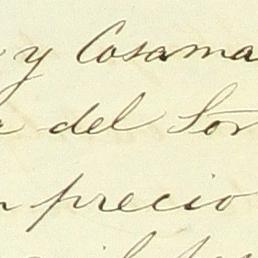 y Cosama
del Sor
precio